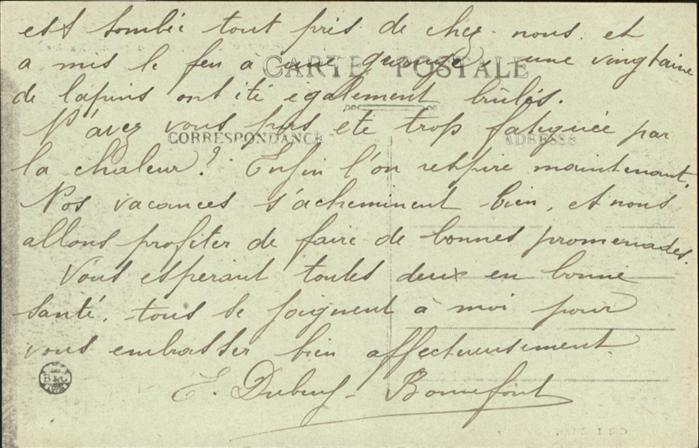 est tombée tout près de chez nous et
CARTE POSTALE
a mis le feu à une grange, une vingtaine
de lapins ont été egalement brûlés.
N'avez vous pas été trop fatiguée par
CORRESPONDANCE
ADRESSE
la chaleur? Enfin l'on respire maintenant.
Nos vacances s'acheminent bien, et nous
allons profiter de faire de bonnes promenades.
Vous espérant toutes deux en bonne
santé, tous se joignent à moi pour
vous embrasser bien affectueusement.
E. Bonnefont